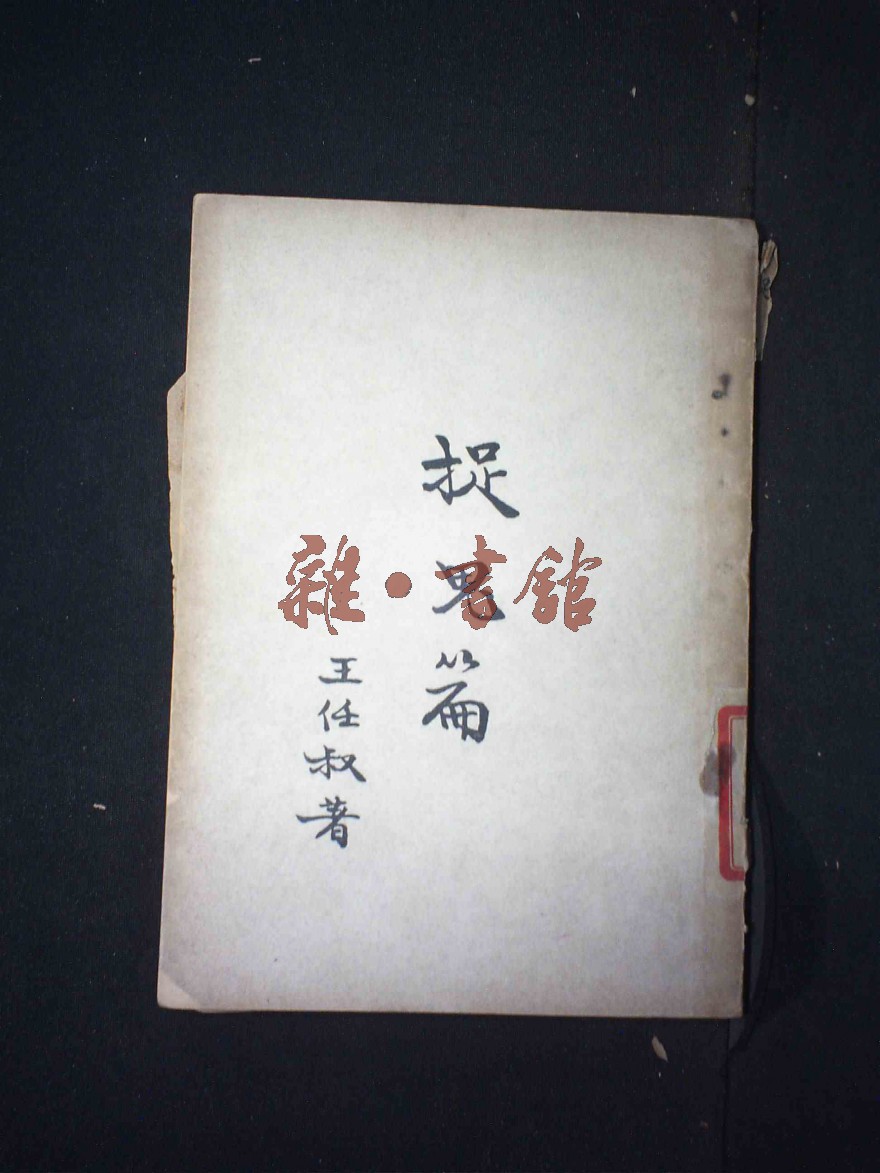 捉鬼篇
王任叔著
雜·書館